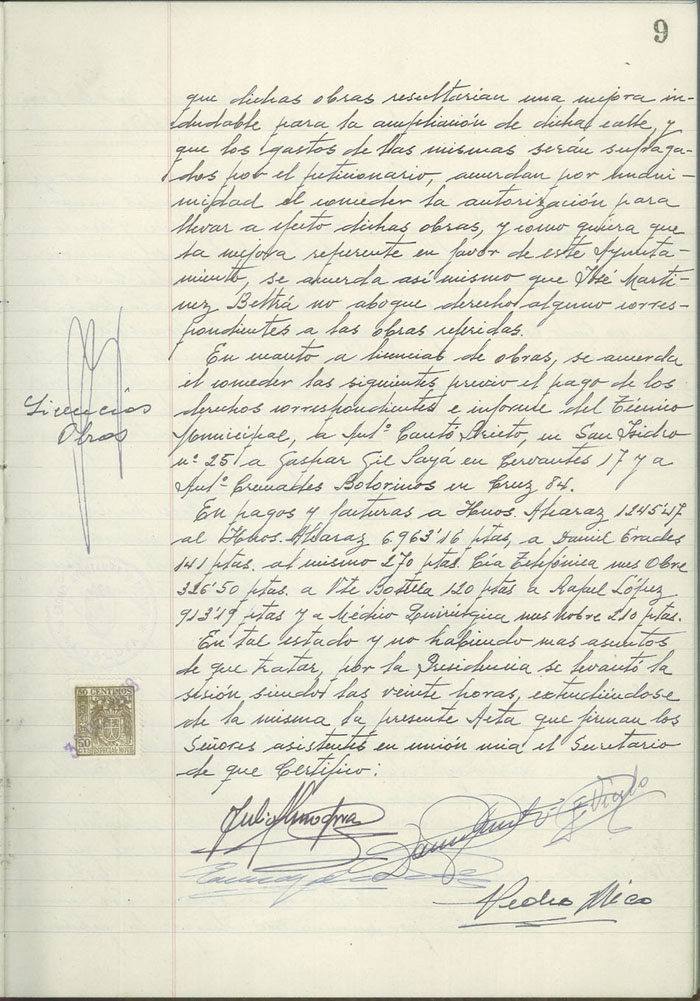 9
que dichas obras resultarian una mejora in-
dudable para la ampliación de dicha calle, y
que los gastos de las mismas serán sufraga-
dos por el peticionario, acuerdan por unani-
midad el conceder la autorización para
llevar a efecto dichas obras, y como quiera que
la mejora referente en favor de este Ayunta-
miento, se acuerda asi mismo que José Marti-
nez Beltrá no abogue derecho alguno corres-
pondientes a las obras referidas.
En cuanto a licencias de obras, se acuerda
el conceder las siguientes previo el pago de los
derechos correspondientes e informe del Técnico
Municipal, a Antº Cantó Prieto, en San Isidro
nº 25 a Gaspar Gil Payá en Cervantes 17 y a
Antº Cremades Bolorinos en Cruz 84.
Licencias
Obras
En pagos y facturas a Hnos. Alcaraz 1245'47
al Hnos. Alcaraz 6.963'16 ptas, a Daniel Erades
141 ptas. al mismo 270 ptas. Cía Telefónica mes Obre
326'50 ptas. a Vte Botella 120 ptas a Rafael López
913'19 ptas y a Médico Quirúrgica mes Nobre 210 ptas.
En tal estado y no habiendo mas asuntos
de que tratar, por la Presidencia se levantó la
sesión siendo las veinte horas, extendiéndose
de la misma la presente Acta que firman los
Señores asistentes en unión mia el Secretario
de que Certifico:
50 CENTIMOS
50
CTS ESPECIAL MOVIL
Pedro Mico